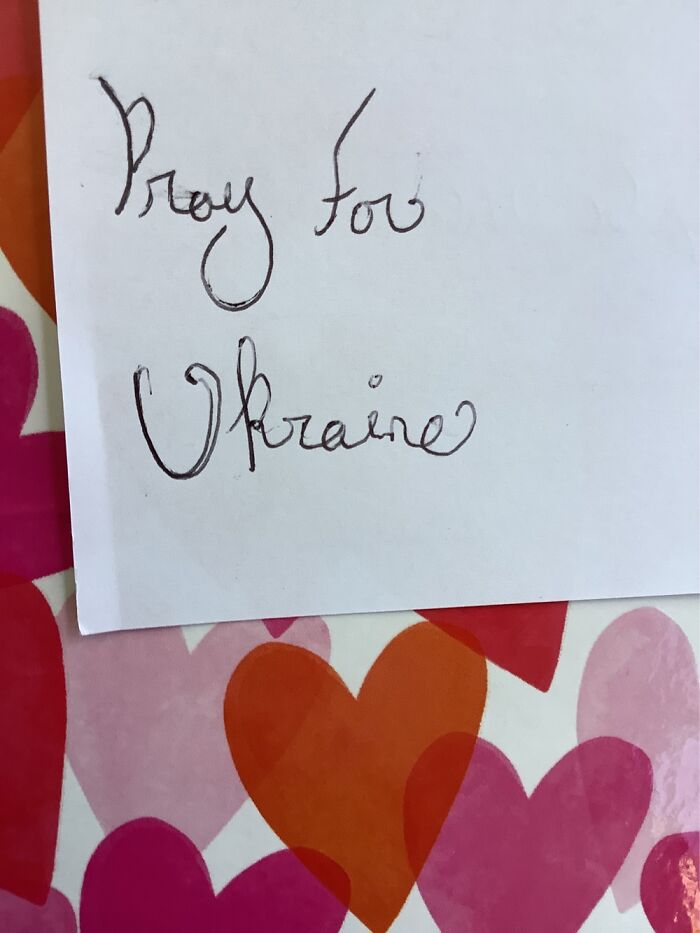 Pray For
Ukraine